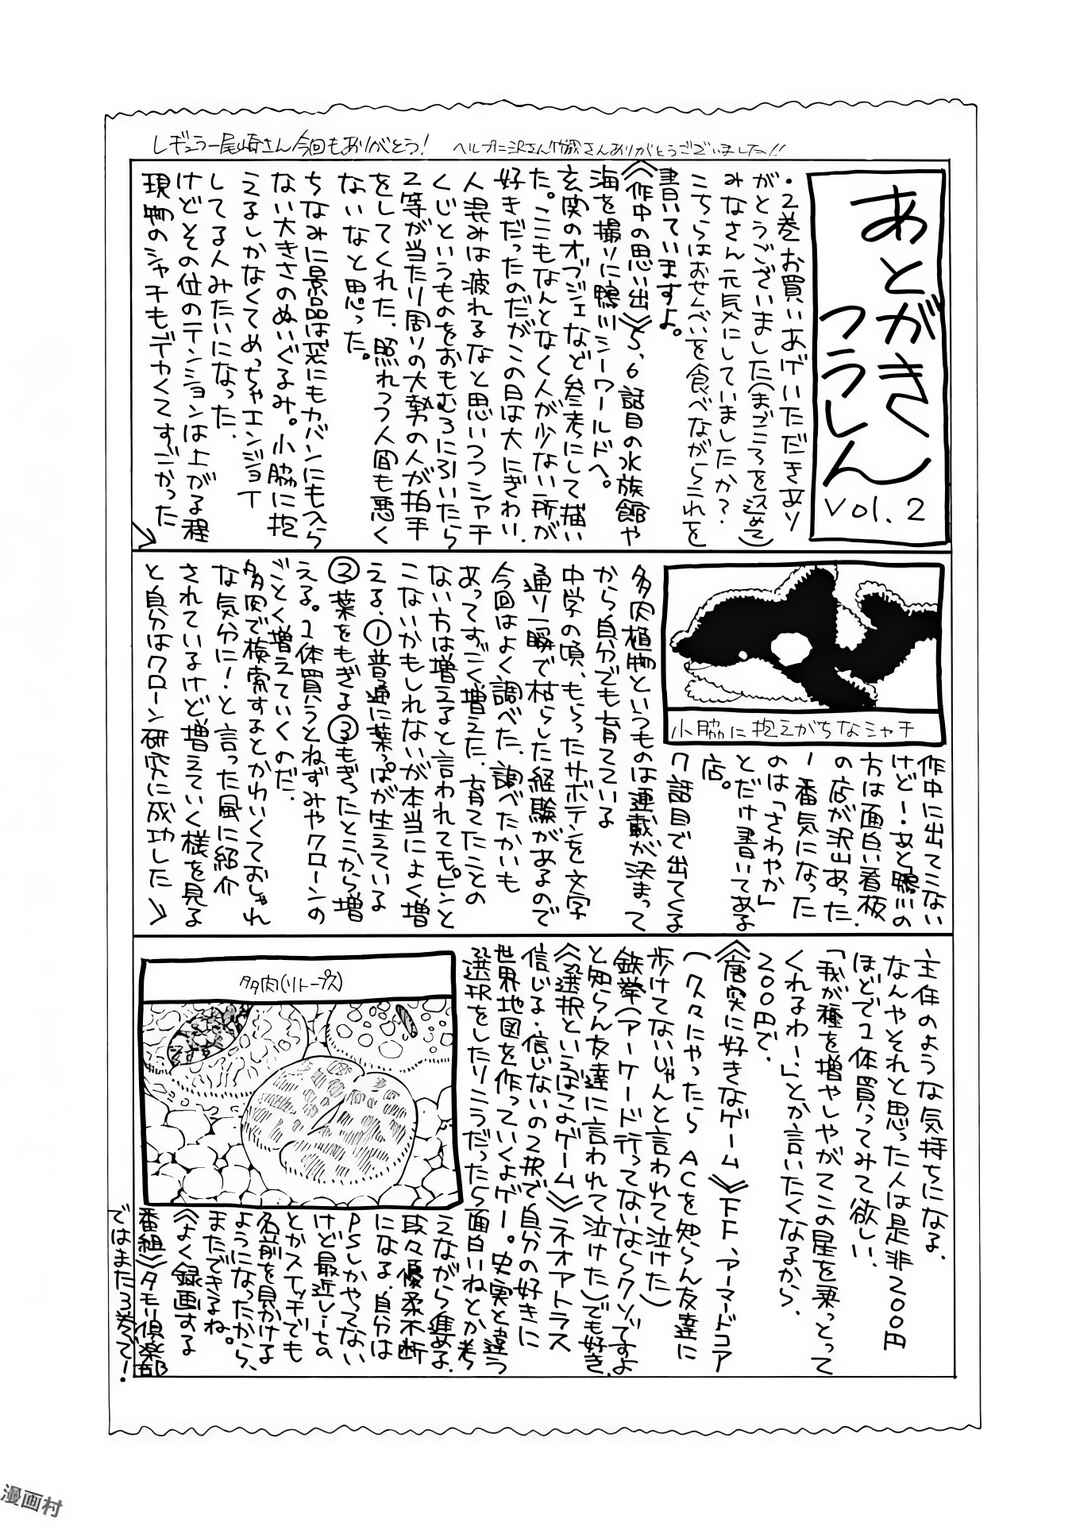 レギュラー尾崎さん今回もありがとう!
ヘルプ二沢さん竹蔵さんありがとうございました!!
あとがき
つうしん
vol.2
・2巻お買いあげいただきあり
がとうございました(まごころを込めて)
みなさん元気にしていましたか?
こちらはおせんべいを食べながらこれを
書いていますよ。
《作中の思い出》5、6話目の水族館や
海を撮りに鴨川シーワールドへ。
玄関のオブジェなど参考にして描い
た。ここもなんとなく人が少ない所が
好きだったのだがこの日は大にぎわい。
人混みは疲れるなと思いつつシャチ
くじというものをおもむろに引いたら
2等が当たり周りの大勢の人が拍手
をしてくれた、照れつつ人間も悪く
ないなと思った。
ちなみに景品は死にもカバンにも入ら
ない大きさのぬいぐるみ。小脇に抱
えるしかなくてめっちゃエンジョイ
してる人みたいになった。
けどその位のテンションは上がる程
現物のシャチもデカくてすごかった
小脇に抱えがちなシャチ
作中に出てこない
けどー!あと鴨川の
方は面白い看板
の店が沢山あった
1番気になった
のは「さわやか」
とだけ書いてある
店。
7話目で出てくる
多肉植物というものは連載が決まって
から自分でも育てている
中学の頃、もらったサボテンを文字
通り一瞬で枯らした経験があるので
今回はよく調べた、調べたかいも
あってすごく増えた、育てたことの
ない方は増えると言われてもピンと
こないかもしれないが本当によく増
える、①普通に葉っぱが生えている
②葉をもぎる③もぎったとこから増
える。1体買うとねずみやクローンの
ごとく増えていくのだ。
多肉で検索するとかわいくておしゃれ
な気分に!と言った風に紹介
されているけど増えていく様を見る
と自分はクローン研究に成功した
主任のような気持ちになる。
なんやそれと思った人は是非200円
ほどで1体買ってみて欲しい、
「我が種を増やしやがてこの星を乗っとって
くれるわー!」とか言いたくなるから、
200円で、
《唐突に好きなゲーム》FF、アーマードコア
(久々にやったらACを知らん友達に
歩けてないじゃんと言われて泣けた)
鉄拳(アーケード行ってないならクソッですよ
と知らん友達に言われて泣けた)でも好き、
《選択といえばこよゲーム》ネオアトラス
信じる・信じないの2択で自分の好きに
世界地図を作っていくよゲー。史実と違う
選択をしたりこうだったら面白いねとか考
えながら進める、
段々優柔不断
になる、自分は
PSしかやってない
けど最近レーもの
とかスイッチでも
名前を見かける
ようになったから、
またできるね。
《よく録画する
番組》タモリ倶楽部
ではまた3巻で!
多肉(リトープス)
漫画村